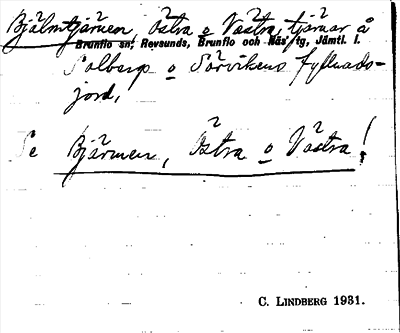 Bjälmtjärnen, Östra o Västra, tjärnar å
Brunflo sn, Revsunds, Brunflo och Näs tg, Jämtl. l.
Solberg o Sörvikens fyllnads-
jord,
Se Bjärmen, Östra o Västra!
C. LINDBERG 1931.